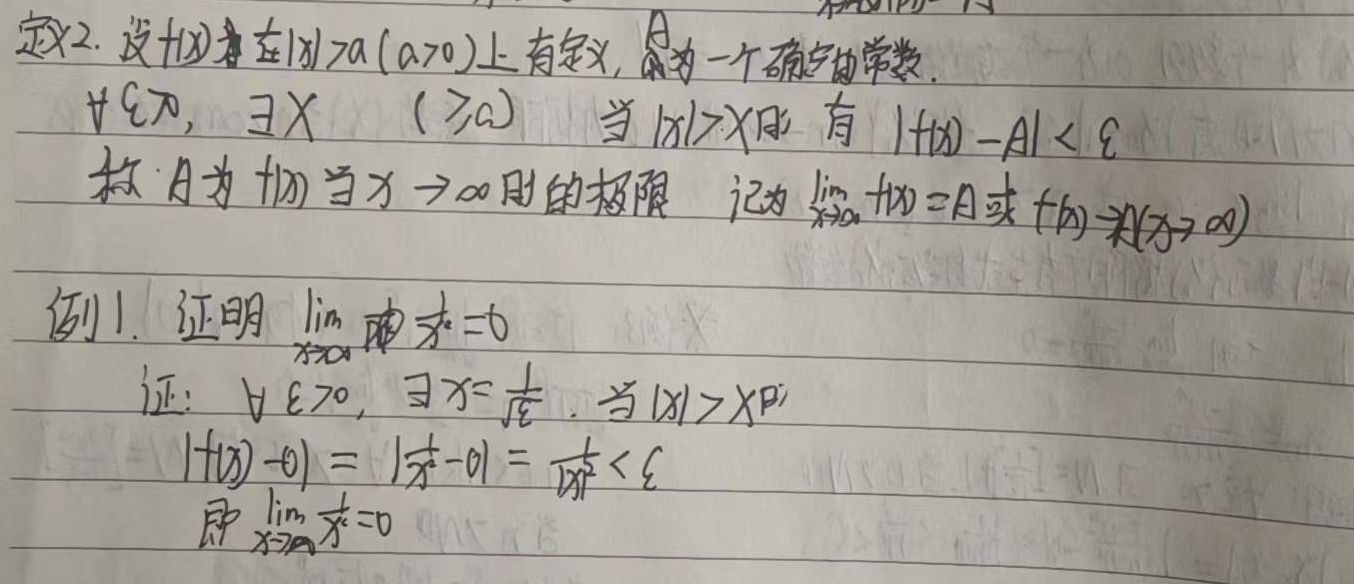 定义2. 设f(x)在|x|>a(a>0)上有定义, A为一个确定的常数.
∀ε>0, ∃X (≥a) 当|x|>X时 有 |f(x)-A|<ε
称A为f(x)当x→∞时的极限 记为 lim x→∞ f(x)=A或f(x)→A(x→∞)
例1. 证明 lim x→∞ 1/x²=0
证: ∀ε>0, ∃X=1/√ε. 当|x|>X时
|f(x)-0|=|1/x²-0|=1/|x|²<ε
即 lim x→∞ 1/x²=0